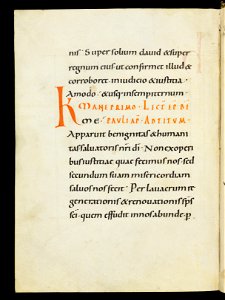 nis. Super solium david & super
regnum eius ut confirmet illud &
corroboret in iudicio & iustitia.
Amodo & usq; in sempiternum.
K MANE PRIMO. LECT EPI
PAULI AP. AD TITUM.
Apparuit benignitas & humani
tas salvatoris nri di. Non ex operi
bus iustitiae quae fecimus nos sed
secundum suam misericordiam
salvos nos fecit. Per lavacrum re
generationis & renovationis sps
sci. quem effudit in nos abunde. p